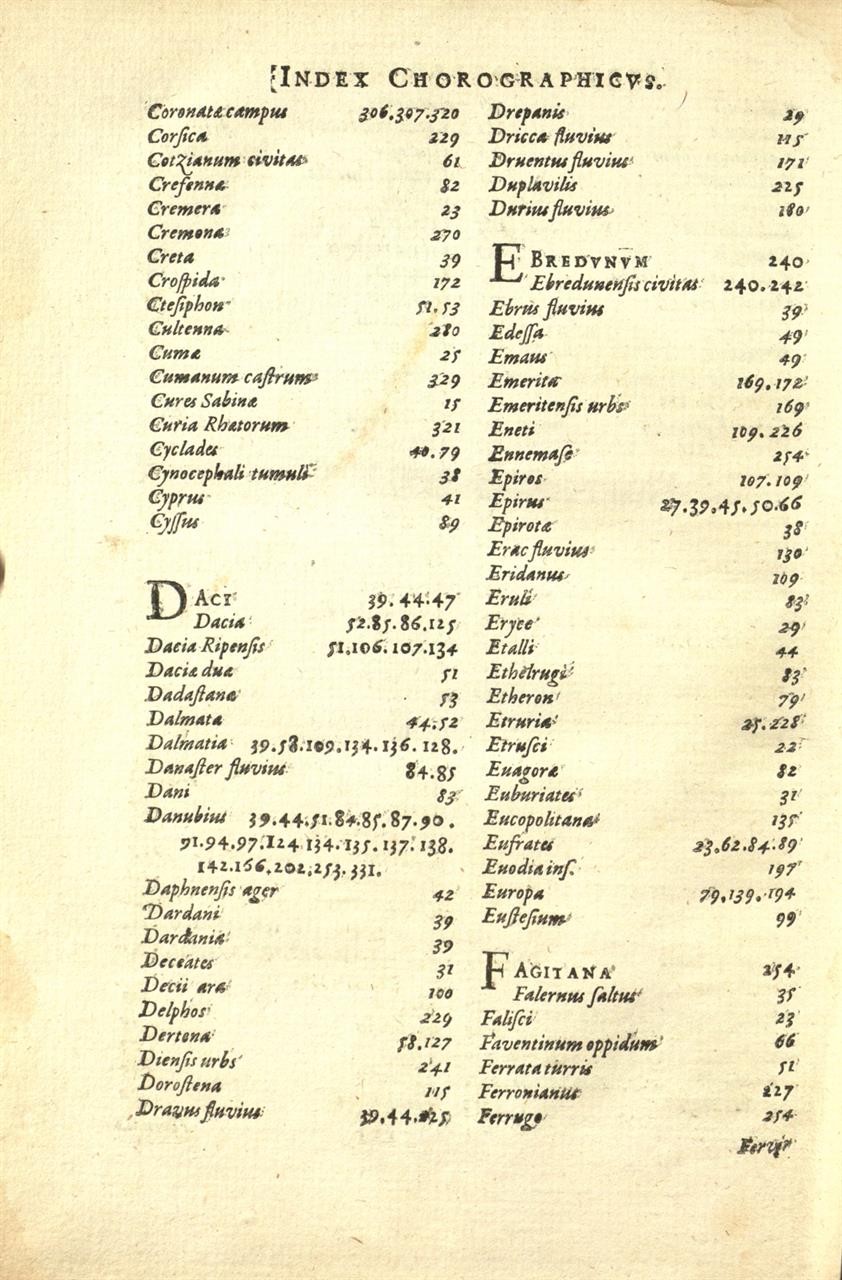 INDEX CHOROGRAPHICVS.
Coronatæ campus 306.307.320
Corſica 229
Corzianum civitas 61
Crefenna 82
Cremera 23
Cremona 270
Creta 39
Croſpida 172
Cteſiphon 51.53
Cultenna 280
Cumæ 25
Cumanum caſtrum 329
Cures Sabinæ 15
Curia Rhætorum 321
Cyclades 40.79
Cynocephali tumuli 38
Cyprus 41
Cyſſus 89
DACI 39.44.47
Dacia 52.85.86.125
Dacia Ripenſis 51.106.107.134
Daciæ duæ 51
Dadaſtana 53
Dalmatæ 44.52
Dalmatia 39.58.109.134.136.128.
Danaſter fluvius 84.85
Dani 83
Danubius 39.44.51.84.85.87.90.
91.94.97.124.134.135.137.138.
142.166.202.253.331.
Daphnenſis ager 42
Dardani 39
Dardania 39
Deceates 31
Decii aræ 100
Delphos 229
Dertona 58.127
Dienſis urbs 241
Doroſtena 115
Dravus fluvius 39.44.225
Drepanis 29
Dricca fluvius 115
Druentus fluvius 171
Duplavilis 225
Durius fluvius 180
EBREDVNVM 240
Ebredunenſis civitas 240.242
Ebrus fluvius 39
Edeſſa 49
Emaus 49
Emerita 169.172
Emeritenſis urbs 169
Eneti 109.226
Ennemaſe 254
Epiros 107.109
Epirus 27.39.45.50.66
Epirotæ 38
Erac fluvius 130
Eridanus 109
Eruli 83
Eryce 29
Etalli 44
Ethelrugi 83
Etheron 79
Etruria 25.228
Etruſci 22
Euagoræ 82
Euburiates 31
Eucopolitana 135
Eufrates 23.62.84.89
Euodia inſ. 197
Europa 79.139.194
Euſteſium 99
FAGITANA 254
Falernus ſaltus 35
Faliſci 23
Faventinum oppidum 66
Ferrata turris 51
Ferronianus 227
Ferruge 254